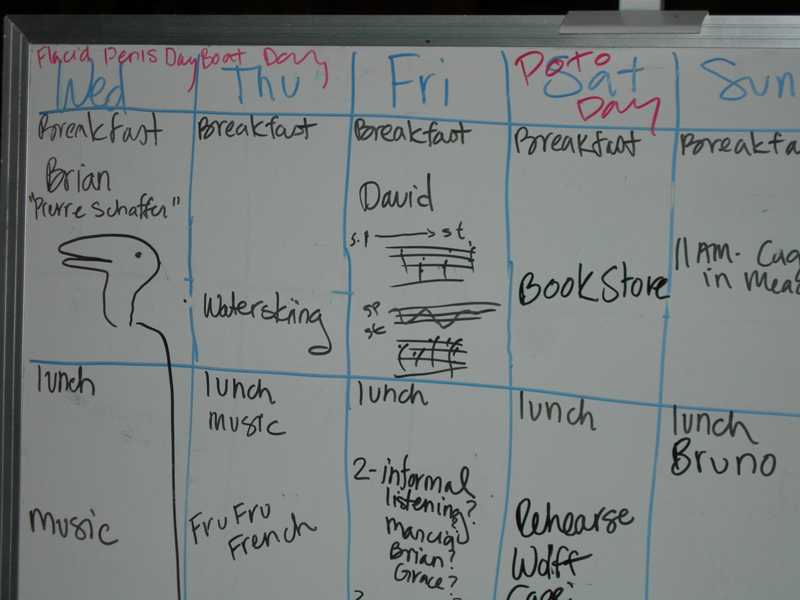 Flacid Penis Day Boat Day Poto
Day
Wed Thu Fri Sat Sun
Breakfast Breakfast Breakfast Breakfast Breakfa
Brian
"Pierre Schaffer"
Waterskiing
David
s.p st.
sp
st
BookStore
11 AM. Cag
in Mea
lunch
music
lunch
music
Fru Fru
French
lunch
2-informal
listening?
Brian?
Grace?
lunch
Rehearse
Wolff
Cage
lunch
Bruno